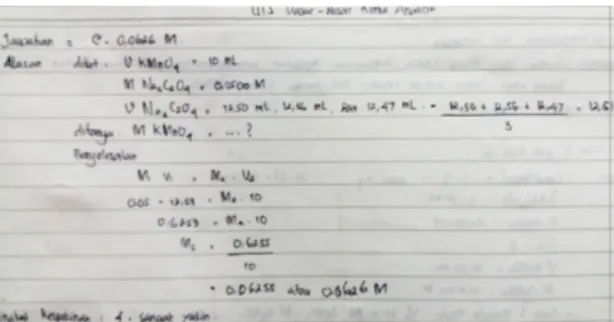 Jawaban = C. 0.0626 M
Alasan : diket. V KMnO4 = 10 mL
M Na2C2O4 = 0.0500 M
V Na2C2O4 = 12,50 mL, 12,56 mL, dan 12,47 mL. = 12,50 + 12,56 + 12,47 / 3 = 12,5
ditanya. M KMnO4 = ... ?
Penyelesaian
M1 V1 = M2 . V2
0.05 . 12.51 = M2 . 10
0.6255 = M2 . 10
M2 = 0.6255 / 10
= 0.06255 atau 0.0626 M
Tingkat keyakinan : 4. sangat yakin